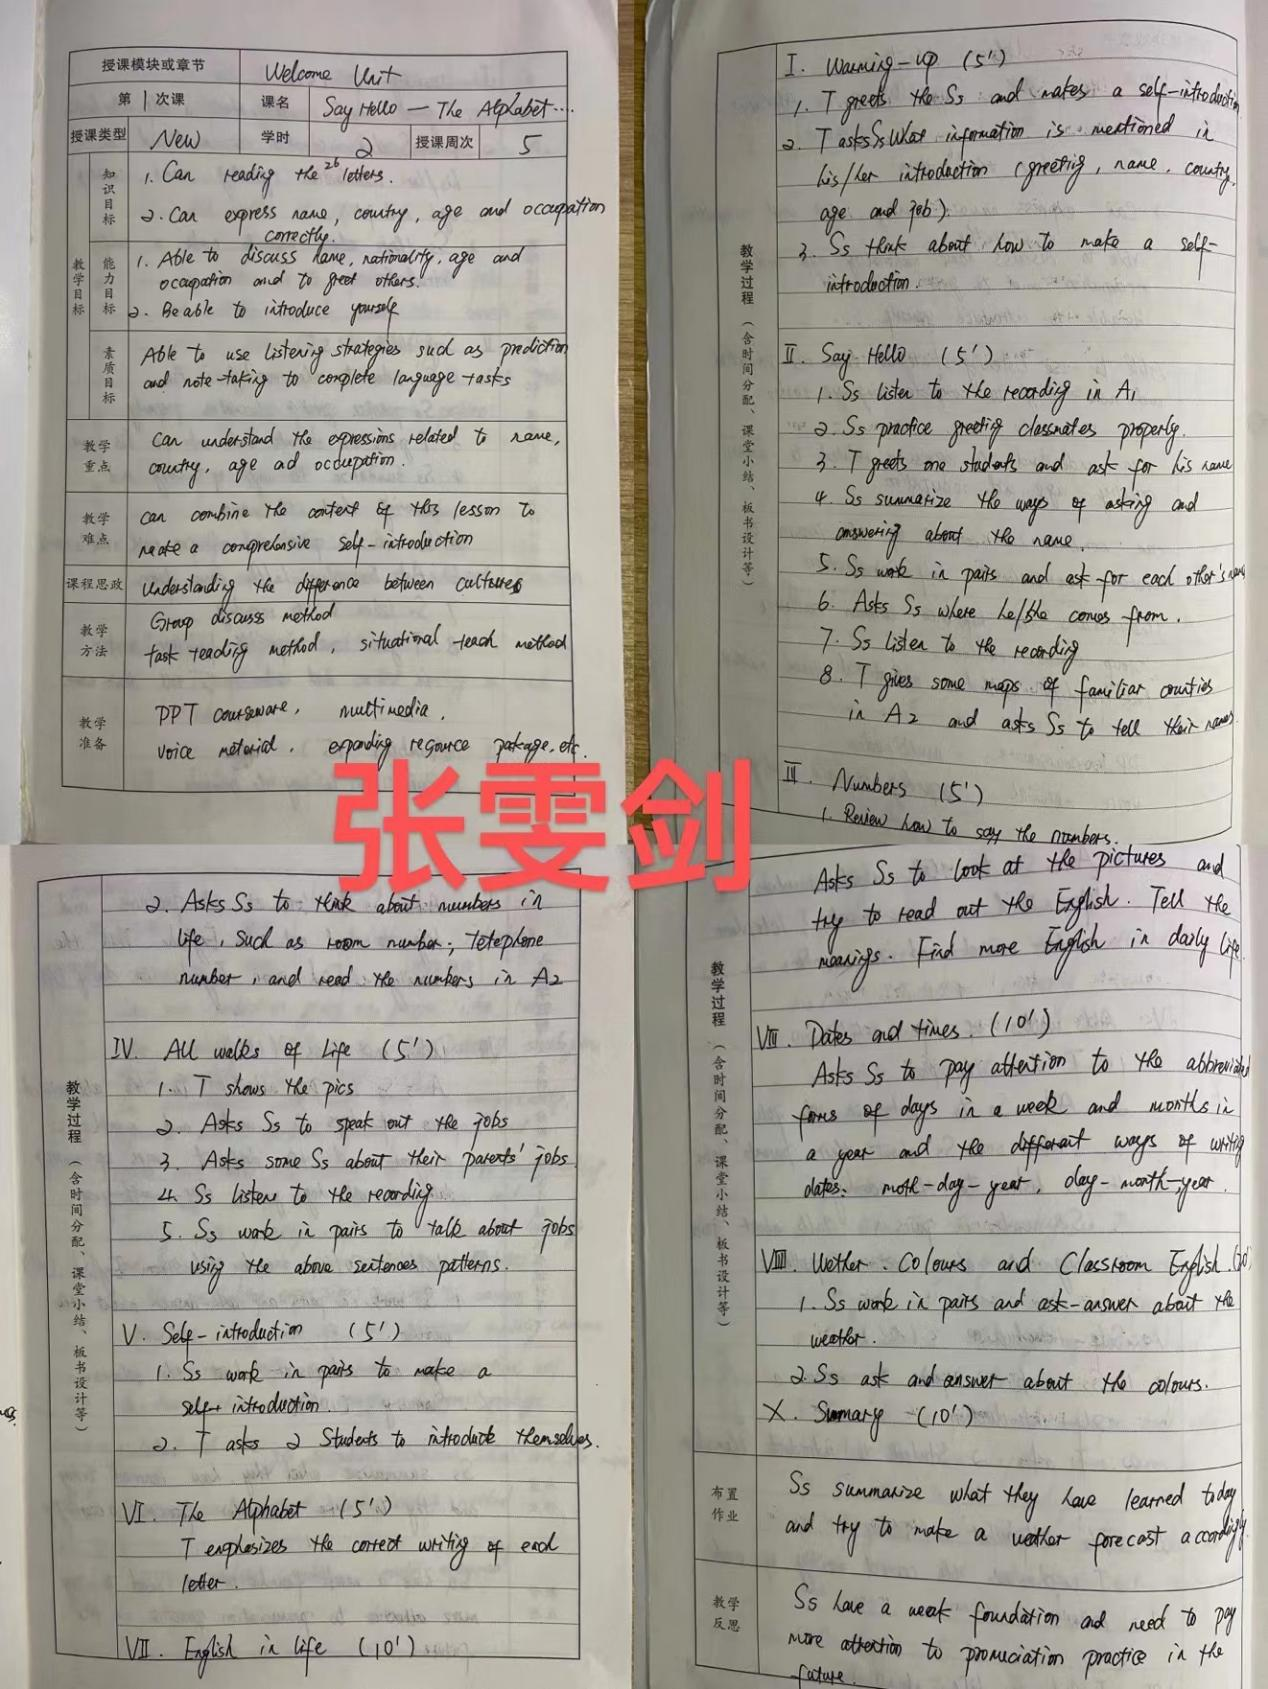 授课模块或章节 Welcome Unit
第 1 次课 课名 Say Hello — The Alphabet...
授课类型 New 学时 2 授课周次 5
教学目标
知识目标
1. Can reading the 26 letters.
2. Can express name, country, age and occupation
correctly.
能力目标
1. Able to discuss name, nationality, age and
occupation and to greet others.
2. Be able to introduce yourself
素质目标
Able to use listening strategies such as prediction
and note-taking to complete language tasks
教学重点
Can understand the expressions related to name,
country, age ad occupation.
教学难点
can combine the content of this lesson to
make a comprehensive self-introduction
课程思政 Understanding the difference between cultures
教学方法
Group discuss method
task reading method, situational teach method
教学准备
PPT courseware, multimedia,
voice material, expanding resource package, etc.
教学过程(含时间分配、课堂小结、板书设计等)
I. Warming-up (5')
1. T greets the Ss and makes a self-introduction
2. T asks Ss what information is mentioned in
his/her introduction (greeting, name, country,
age and job).
3. Ss think about how to make a self-
introduction.
II. Say Hello (5')
1. Ss listen to the recording in A1
2. Ss practice greeting classmates properly.
3. T greets one students and ask for his name
4. Ss summarize the ways of asking and
answering about the name.
5. Ss work in pairs and ask for each other's name
6. Asks Ss where he/she comes from.
7. Ss listen to the recording
8. T gives some maps of familiar counties
in A2 and asks Ss to tell their names
III. Numbers (5')
1. Review how to say the numbers.
张雯剑
教学过程(含时间分配、课堂小结、板书设计等)
2. Asks Ss to think about numbers in
life, such as room number; Tetephone
number, and read the numbers in A2
IV. All walks of Life (5')
1. T shows the pics
2. Asks Ss to speak out the jobs
3. Asks some Ss about their parents' jobs
4. Ss listen to the recording
5. Ss work in pairs to talk about jobs
using the above sentences patterns.
V. Self-introduction (5')
1. Ss work in pairs to make a
self-introduction.
2. T asks 2 Students to introduce themselves.
VI. The Alphabet (5')
T emphasizes the correct writing of each
letter.
VII. English in life (10')
教学过程(含时间分配、课堂小结、板书设计等)
Asks Ss to look at the pictures and
try to read out the English. Tell the
meanings. Find more English in daily life.
VIII. Dates and times. (10')
Asks Ss to pay attention to the abbreviated
forms of days in a week and months in
a year and the different ways of writing
dates: moth-day-year, day-month-year.
VIII. Wether. Colours and Classroom English.
1. Ss work in pairs and ask-answer about the
weather.
2. Ss ask and answer about the colours.
X. Summary (10')
布置作业
Ss summarize what they have learned today
and try to make a weather forecast accordingly.
教学反思
Ss have a weak foundation and need to pay
more attention to pronunciation practice in the
future.